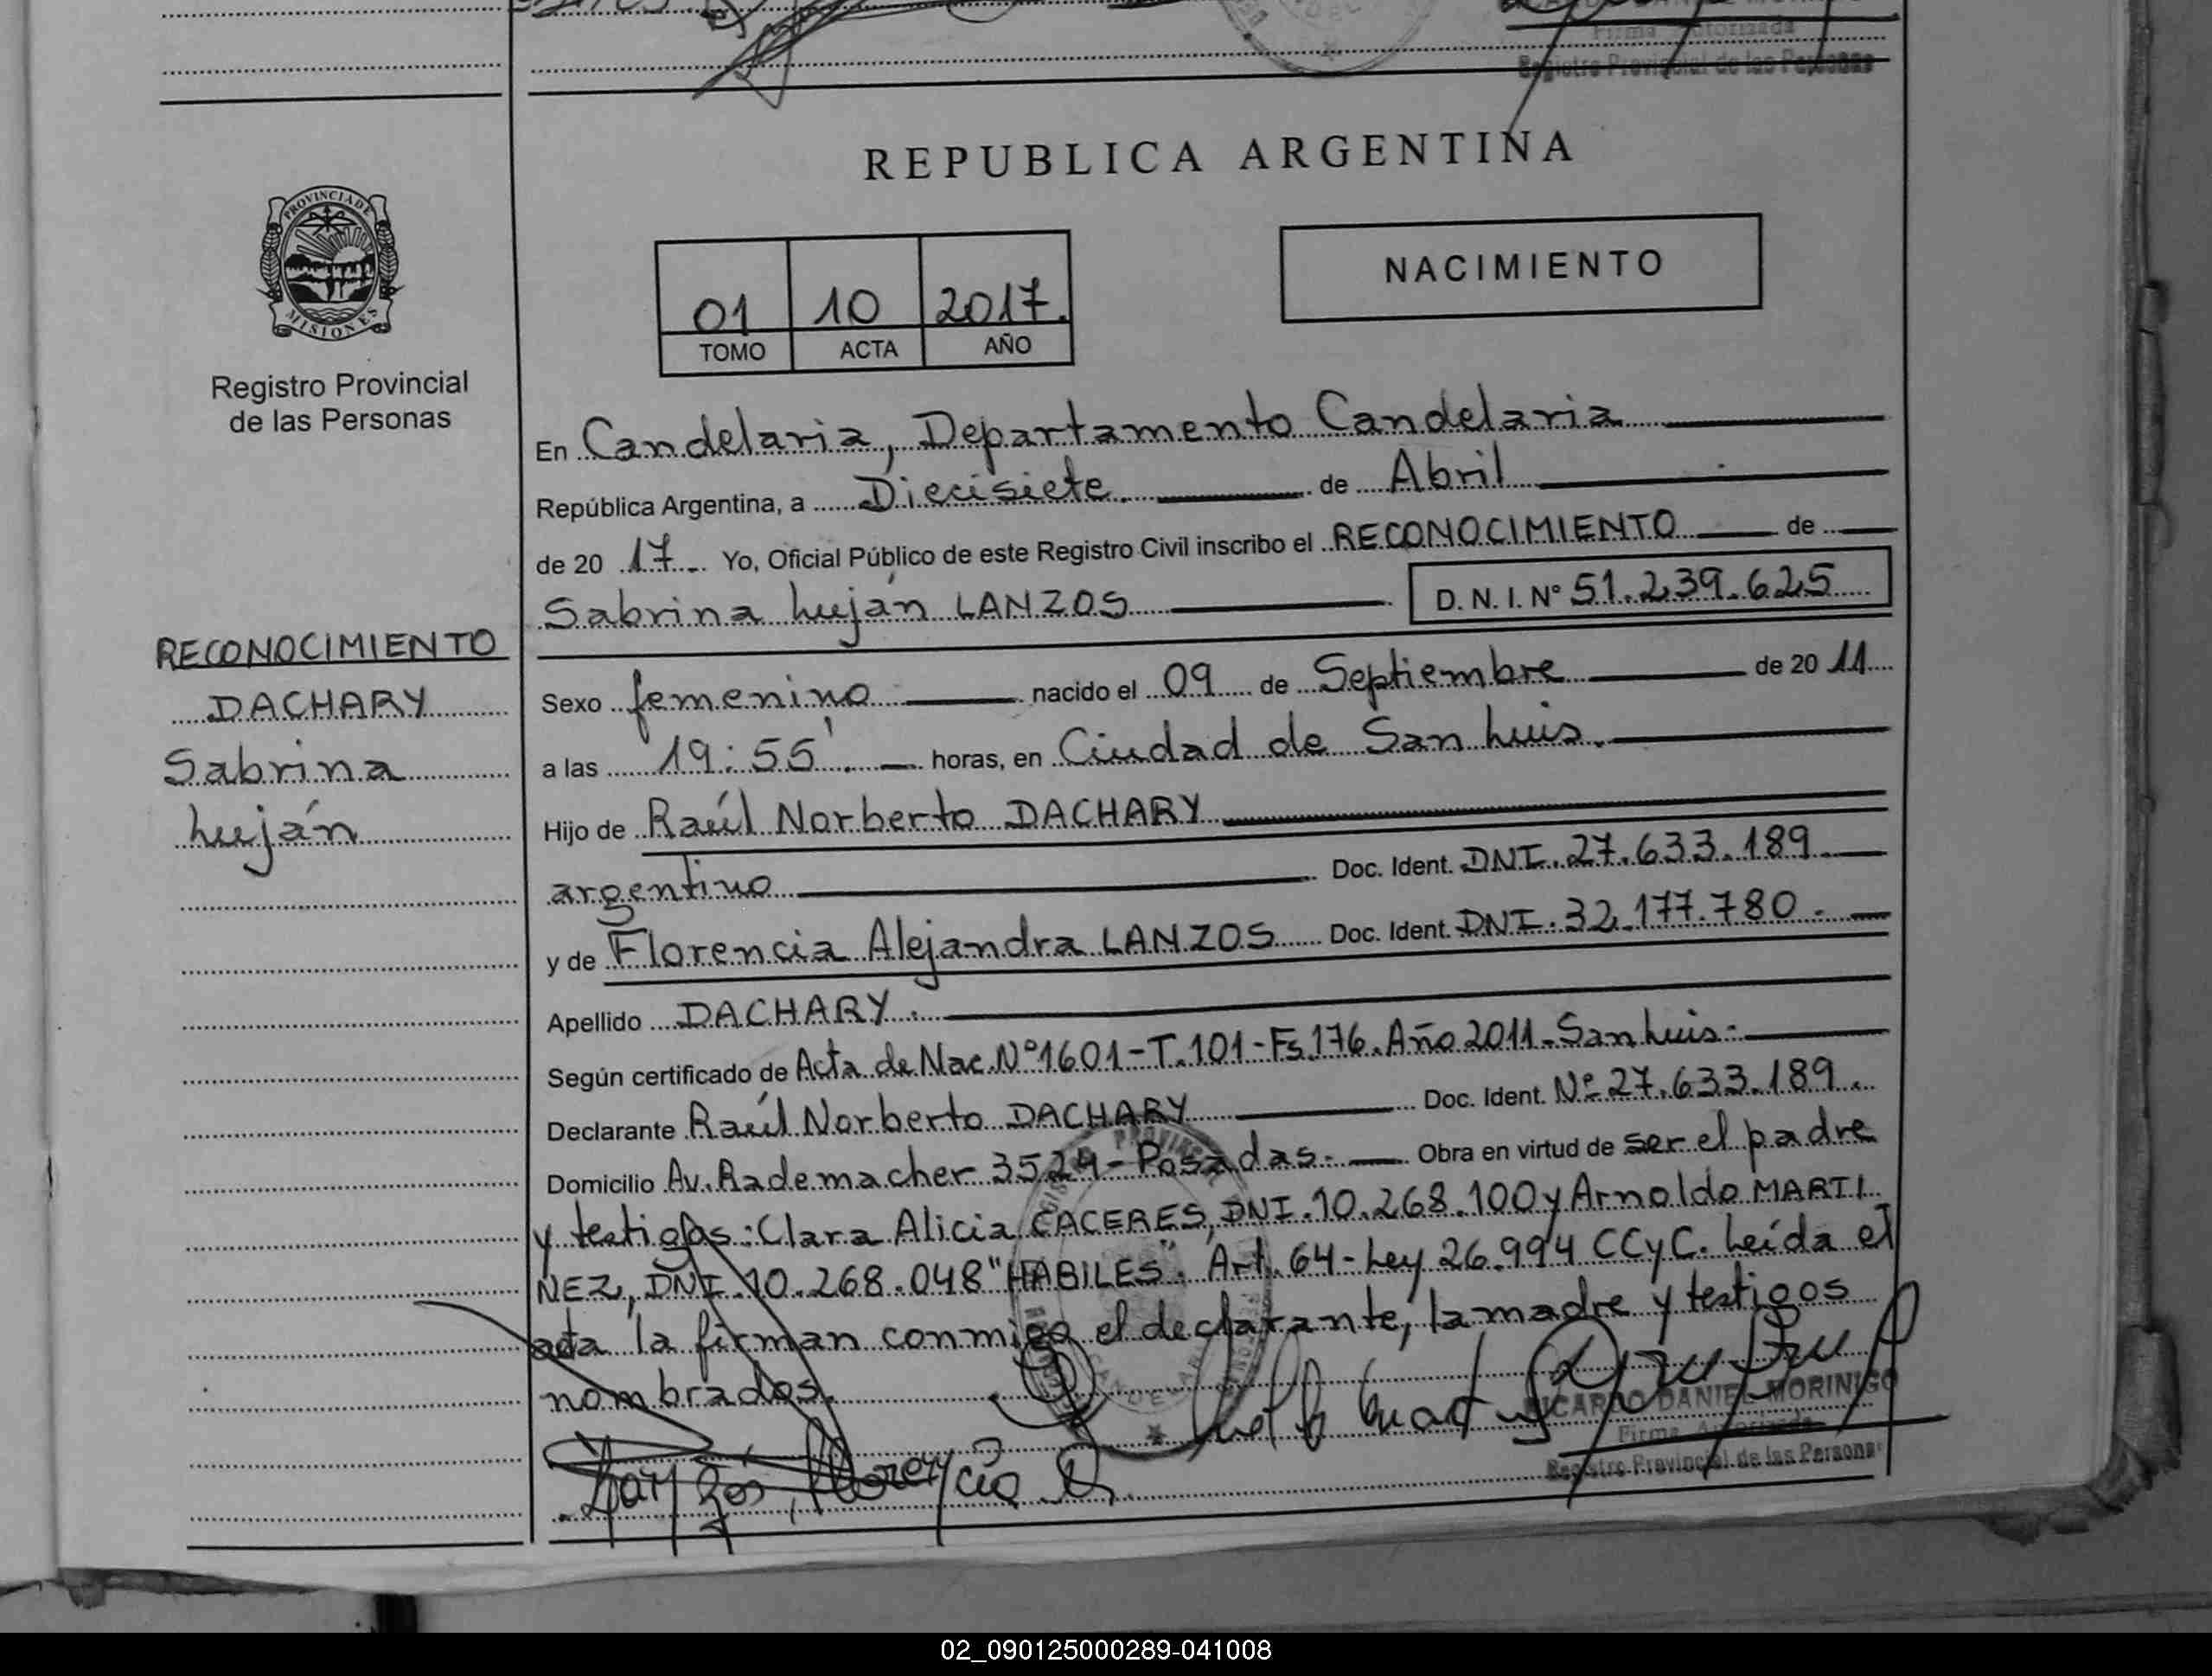 Firma Autorizada
Registro Provincial de las Personas
REPUBLICA ARGENTINA
PROVINCIA DE
MISIONES
Registro Provincial
de las Personas
01 10 2017.
TOMO ACTA AÑO
NACIMIENTO
En Candelaria, Departamento Candelaria
República Argentina, a Diecisiete. de Abril
de 20 17. Yo, Oficial Público de este Registro Civil inscribo el RECONOCIMIENTO de
Sabrina Luján LANZOS D. N. I. N° 51.239.625
RECONOCIMIENTO
DACHARY
Sabrina
Luján
Sexo femenino nacido el 09 de Septiembre de 20 11
a las 19:55'. horas, en Ciudad de San Luis.
Hijo de Raúl Norberto DACHARY
argentino Doc. Ident. DNI. 27.633.189
y de Florencia Alejandra LANZOS Doc. Ident. DNI. 32.177.780.
Apellido DACHARY.
Según certificado de Acta de Nac. N°1601-T.101-Fs.176. Año 2011-San Luis-
Declarante Raúl Norberto DACHARY Doc. Ident. N° 27.633.189.
Domicilio Av. Rademacher 3524-Posadas. Obra en virtud de ser el padre
y testigos: Clara Alicia CACERES, DNI. 10.268.100 y Arnoldo MARTI
NEZ, DNI. 10.268.048 "HABILES". Art. 64-Ley 26.994 CCyC. Leída el
acta la firman conmigo el declarante, la madre y testigos
nombrados.
RICARDO DANIEL MORINIGO
Firma Autorizada
Registro Provincial de las Personas
Lanzos, Florencia A.
02_090125000289-041008